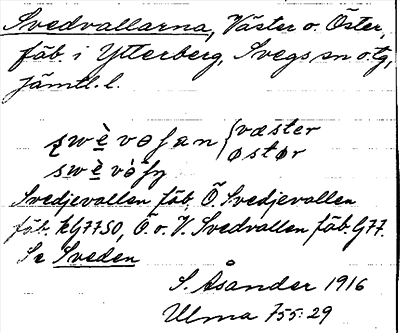 Svedvallarna, Väster o. Öster,
fäb. i Ytterberg, Svegs sn o. tg,
Jämtl. l.
väster
swè̱vəfan { øster
swè̱vòfy
Svedjevallen fäb. Ö. Svedjevallen
fäb. kG7750, Ö. o. V. Svedvallen fäb. G77.
Se Sveden
S. Åsander 1916
Ulma 755:29